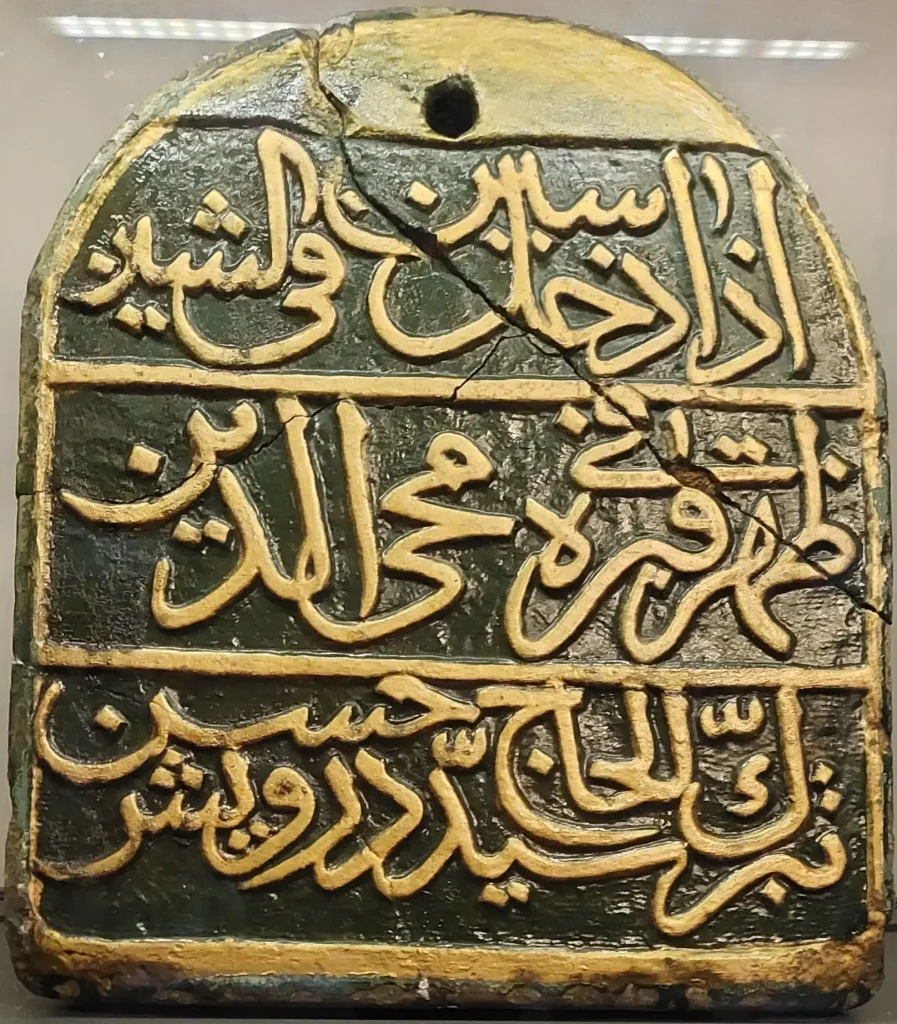 اذا دخل سين في الشين
ظهر قره محى الدين
تبرك الحاج سيد درويش حسين